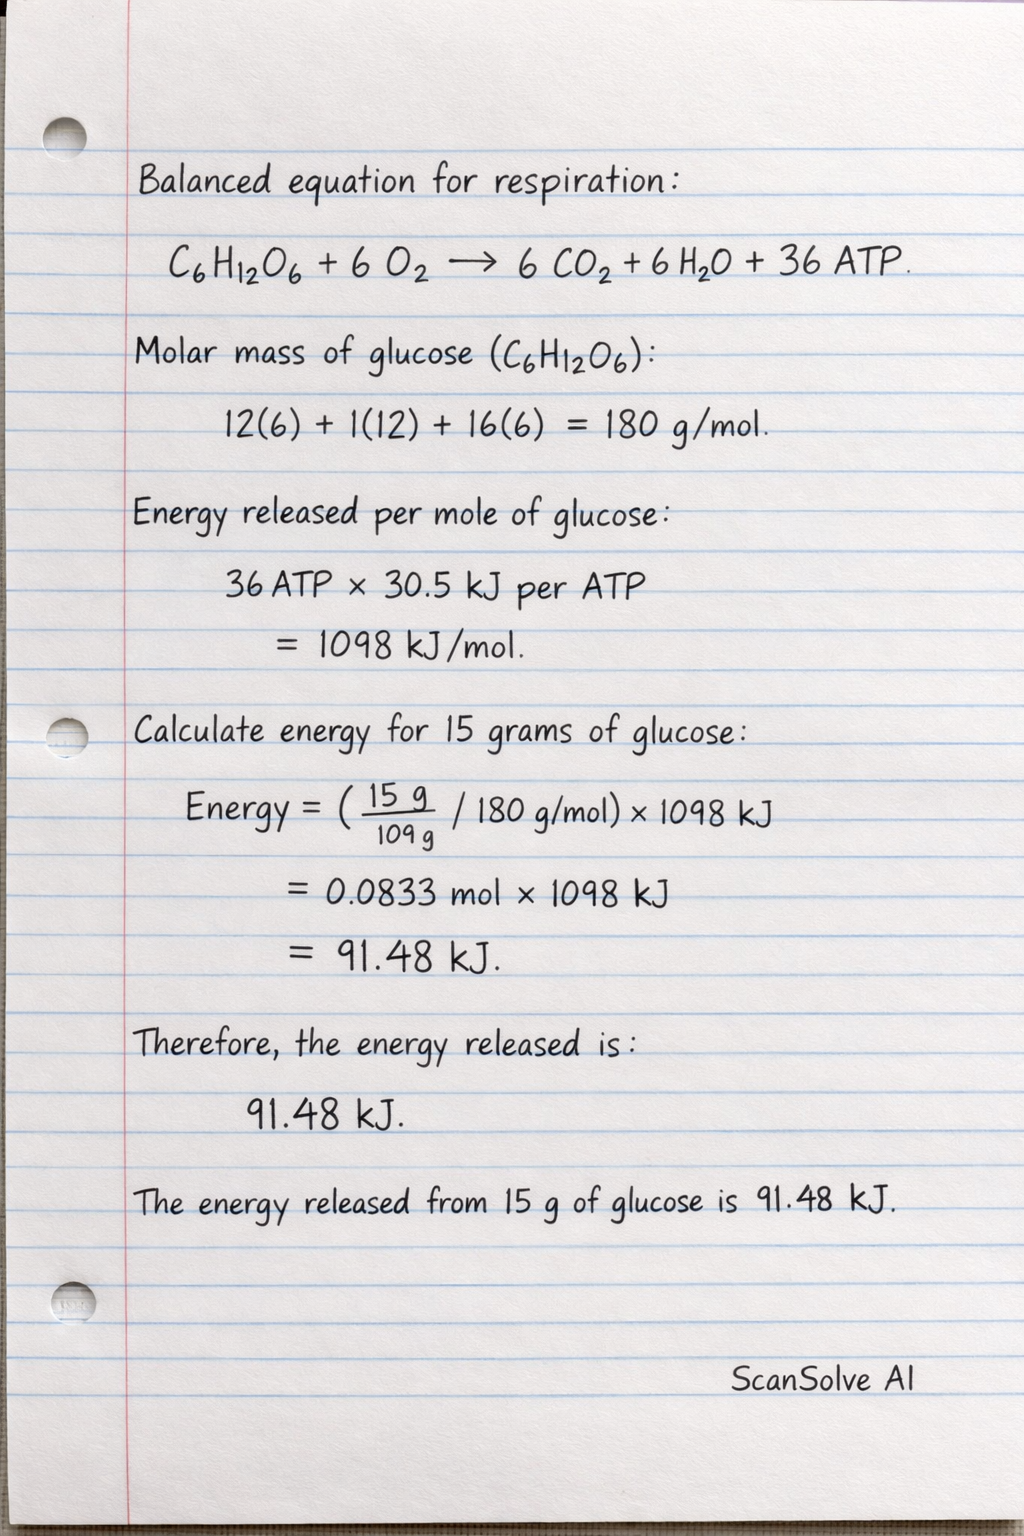 Balanced equation for respiration:
C₆H₁₂O₆ + 6 O₂ → 6 CO₂ + 6 H₂O + 36 ATP.
Molar mass of glucose (C₆H₁₂O₆):
12(6) + 1(12) + 16(6) = 180 g/mol.
Energy released per mole of glucose:
36 ATP × 30.5 kJ per ATP
= 1098 kJ/mol.
Calculate energy for 15 grams of glucose:
Energy = (15 g/109 g / 180 g/mol) × 1098 kJ
= 0.0833 mol × 1098 kJ
= 91.48 kJ.
Therefore, the energy released is:
91.48 kJ.
The energy released from 15 g of glucose is 91.48 kJ.
ScanSolve AI